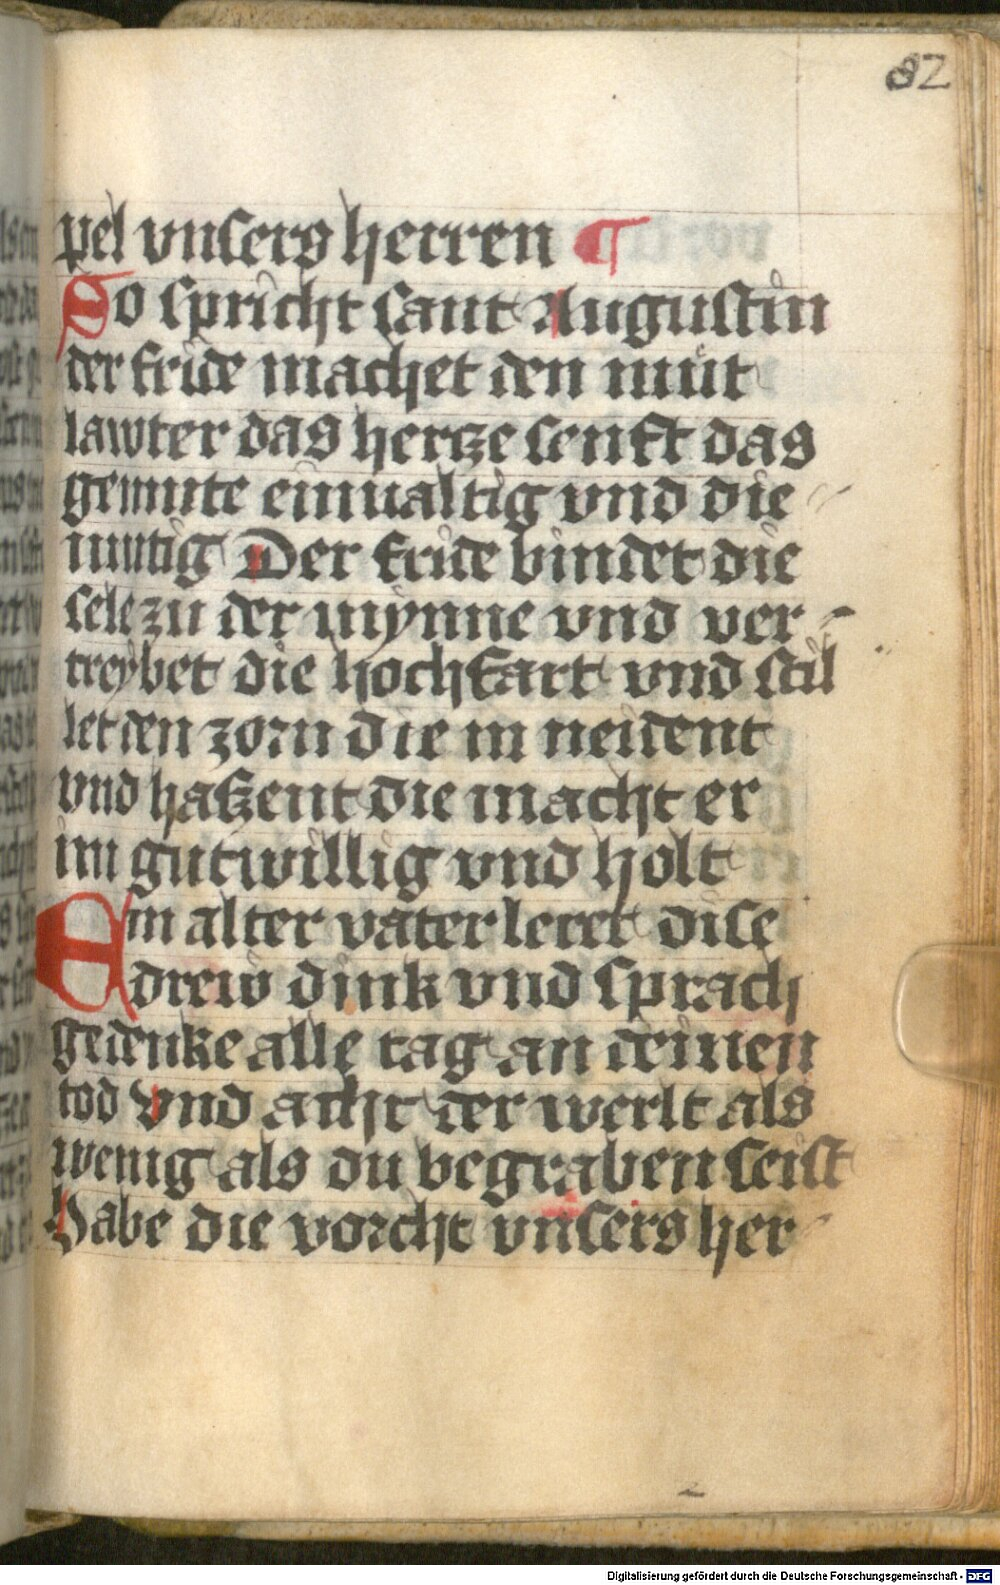 82
pel vnsers herren ¶
So spricht sant Augustin
der fride machet den mut
lawter das hercze senft das
gemute einualtig vnd die-
mutig Der fride bindet die
sele zu der mynne vnd ver-
treybet die hochfart vnd stil
let den zorn die in neident
vnd haßent die macht er
im gutwillig vnd holt
Ein alter vater leret dise
drew dink vnd sprach
gedenke alle tag an deinen
tod vnd acht der werlt als
wenig als du begraben seist
Habe die vorcht vnsers her-
Digitalisierung gefördert durch die Deutsche Forschungsgemeinschaft - DFG